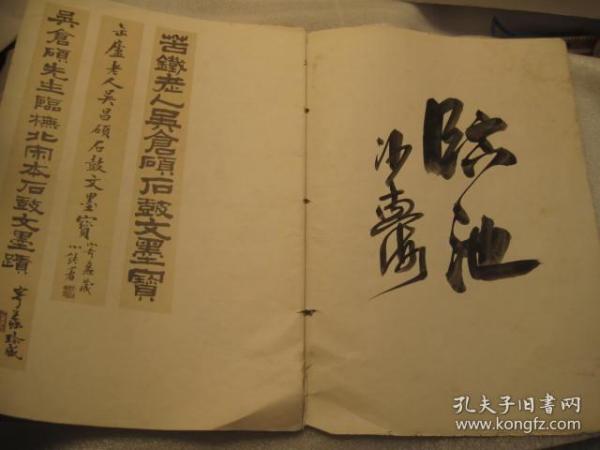 臨池
沙孟海
苦鐵老人吳倉碩石鼓文墨寶
缶廬老人吳昌碩石鼓文墨寶
吳倉碩先生臨橅北宋本石鼓文墨蹟
珍藏
孔夫子旧书网
www.kongfz.com